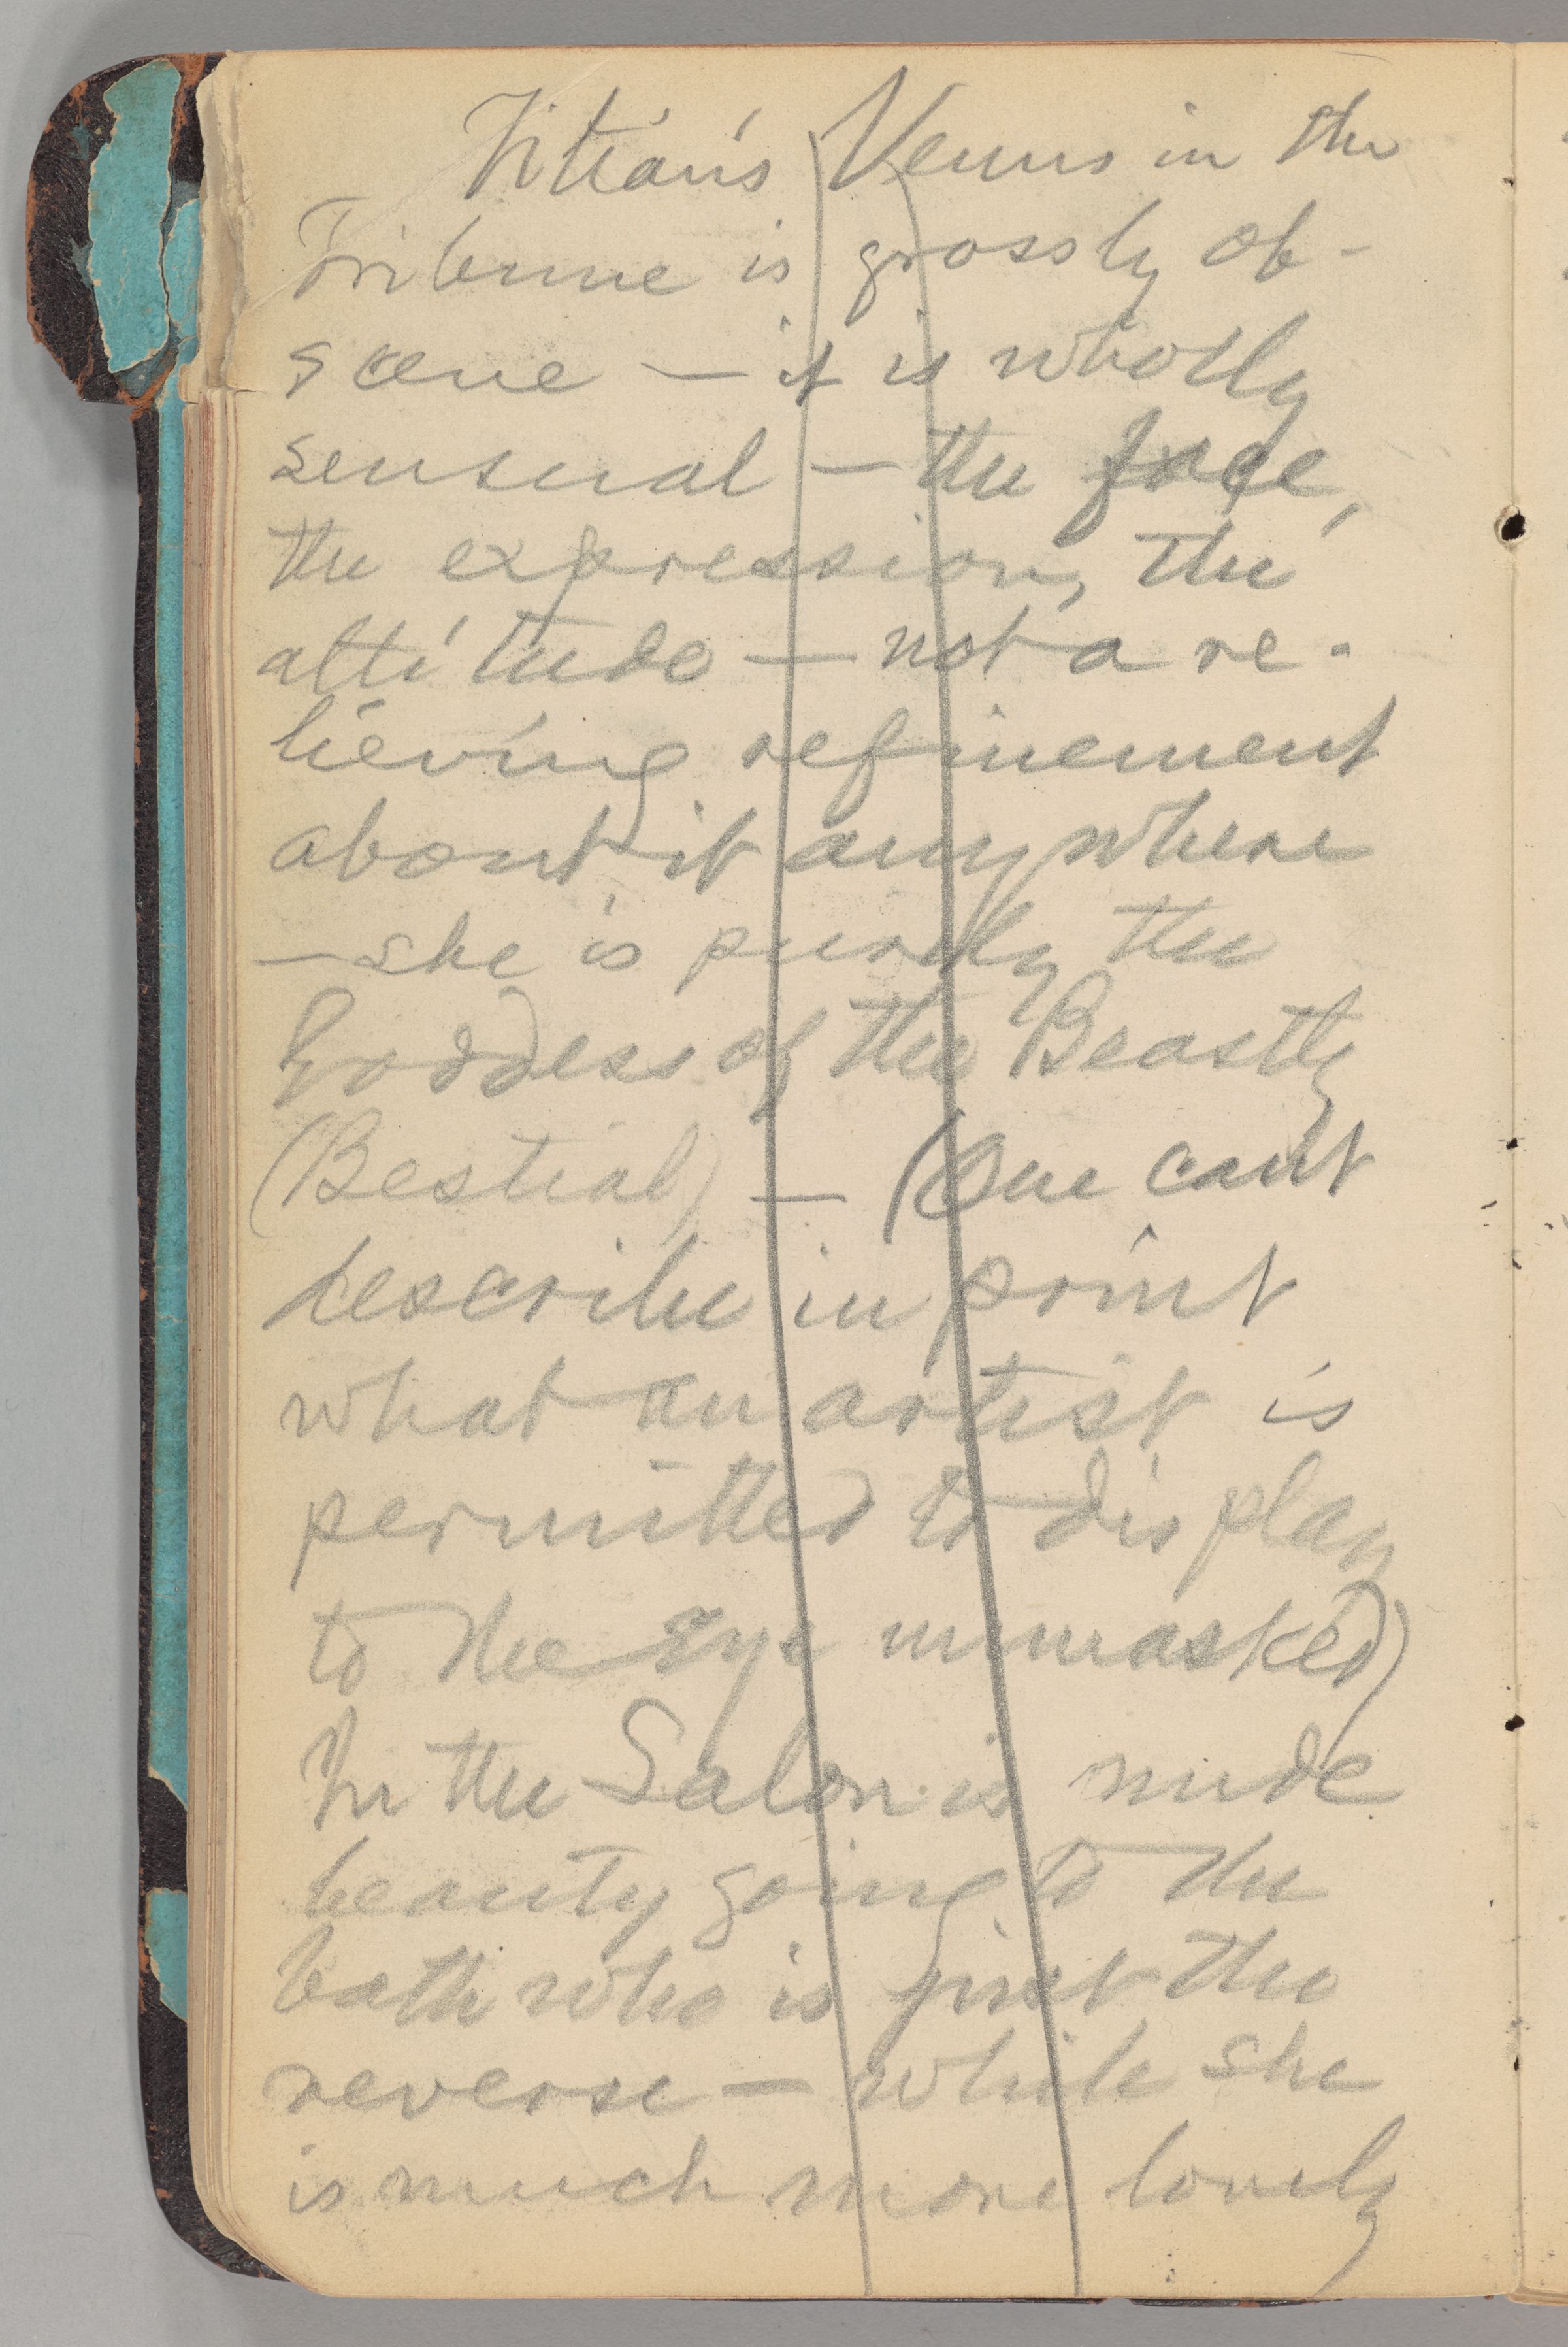 Titian's Venus in the
Tribune is grossly ob-
scene — it is wholly
sensual — the face,
the expression, the
attitude — not a re-
lieving refinement
about it anywhere
— she is purely the
Goddess of the Beastly
(Bestial) — (One can't
describe in print
what an artist is
permitted to display
to the eye unmasked)
In the Salon is nude
beauty going to the
bath who is just the
reverse — while she
is much more lovely